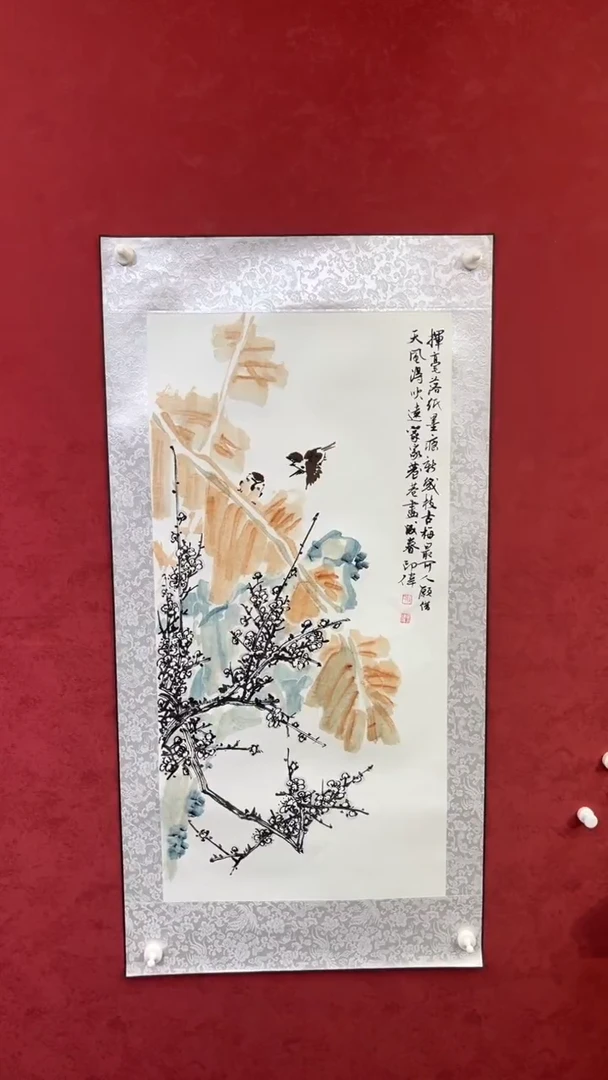 揮毫落紙墨痕新幾枝古梅最可人願借
天風得吹遠家家葊巷畫成春 印偉